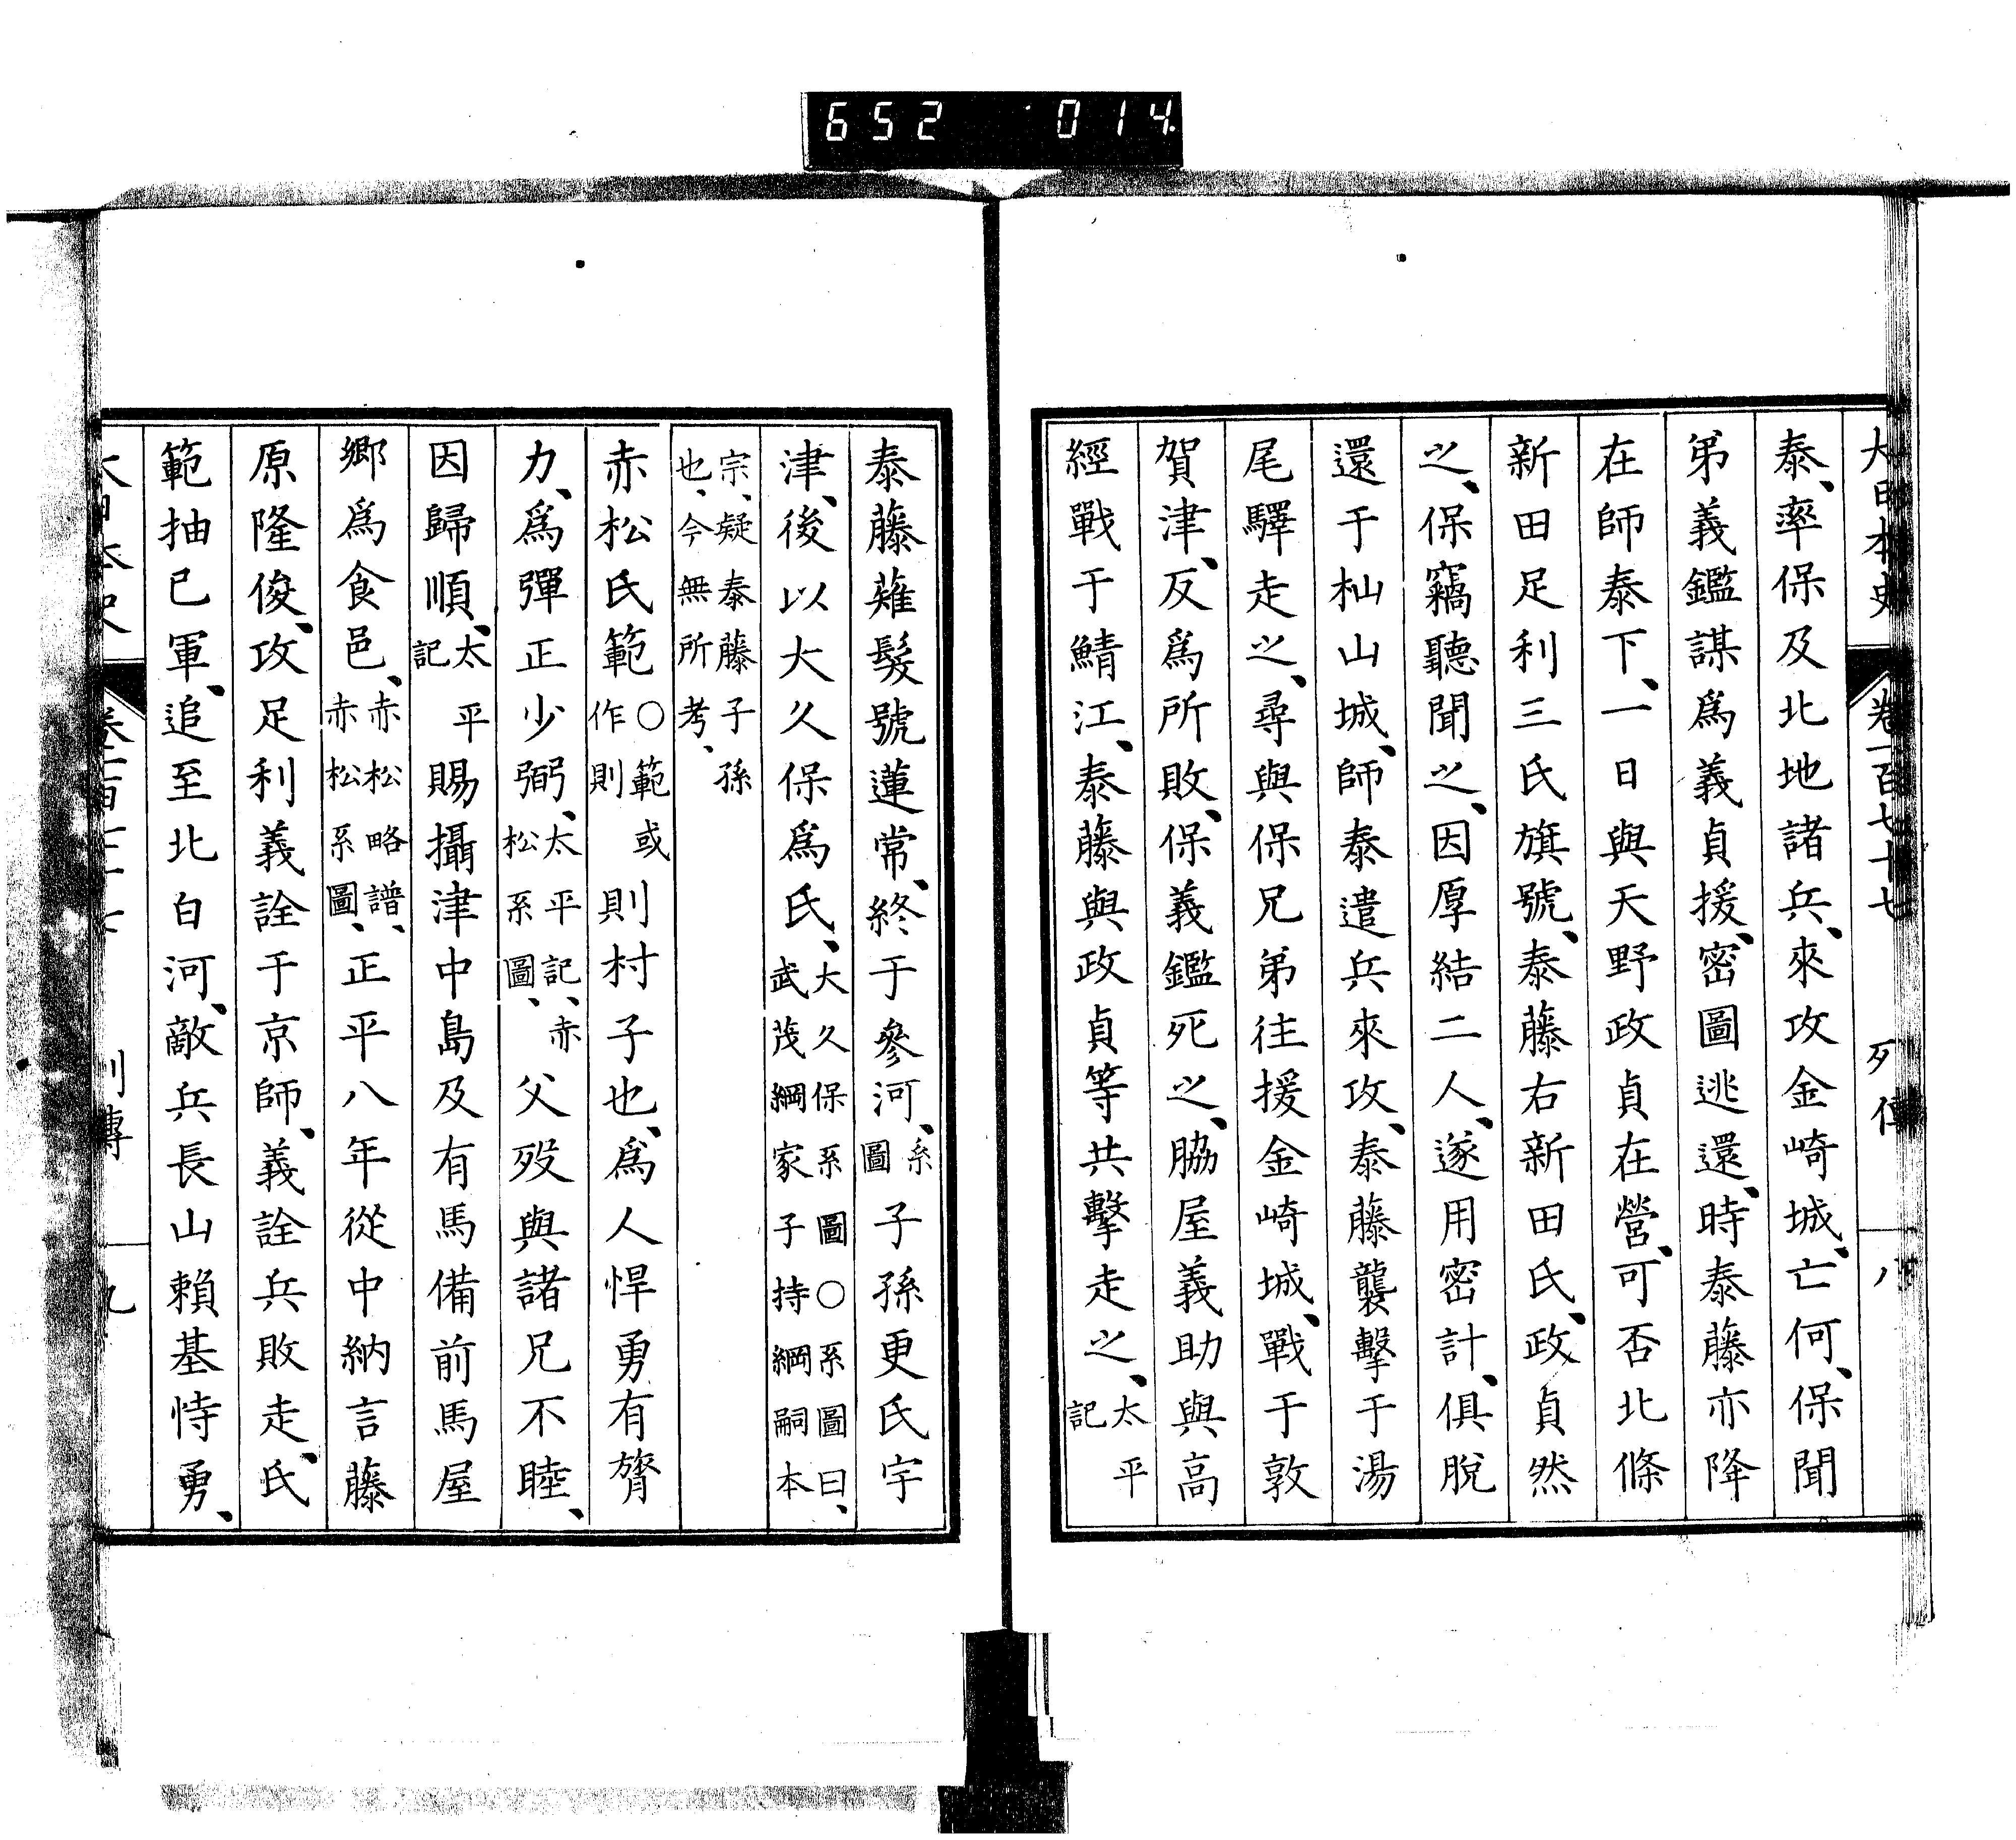 652 014
大日本史 卷一百七十七 列傳 八
泰、率保及北地諸兵、來攻金崎城、亡何、保聞
弟義鑑謀爲義貞援、密圖逃還、時泰藤亦降
在師泰下、一日與天野政貞在營、可否北條
新田足利三氏旗號、泰藤右新田氏、政貞然
之、保竊聽聞之、因厚結二人、遂用密計、俱脫
還于杣山城、師泰遣兵來攻、泰藤襲擊于湯
尾驛走之、尋與保兄弟往援金崎城、戰于敦
賀津、反爲所敗、保義鑑死之、脇屋義助與高
經戰于鯖江、泰藤與政貞等共擊走之、太平記
泰藤薙髮號蓮常、終于參河、系圖子孫更氏宇
津、後以大久保爲氏、大久保系圖○系圖曰、武茂綱家子持綱嗣本
宗、疑泰藤子孫也、今無所考、
赤松氏範○範或作則則村子也、爲人悍勇有膂
力、爲彈正少弼、太平記、赤松系圖、父歿與諸兄不睦、
因歸順、太平記賜攝津中島及有馬備前馬屋
鄉爲食邑、赤松略譜、赤松系圖、正平八年從中納言藤
原隆俊、攻足利義詮于京師、義詮兵敗走、氏
範抽已軍、追至北白河、敵兵長山賴基恃勇、
大日本史 卷一百七十七 列傳 九